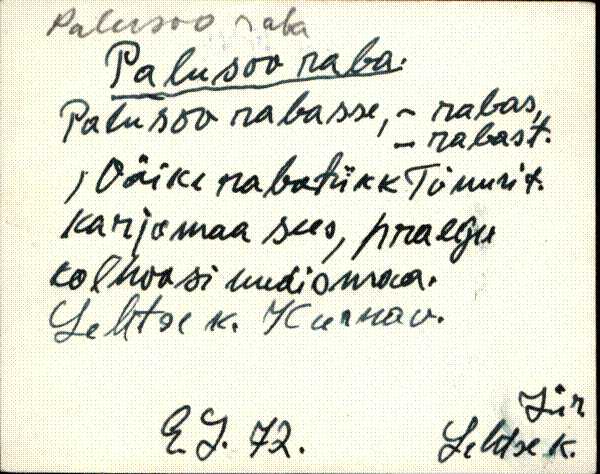 Palusoo raba
Palusoo raba.
Palusoo rabasse, - rabas,
- rabast.
Väike rabatükk
karjamaa sees, praegu
kolhoosi uudismaa.
Lehtse k. Kurnav.
Jür
E J. 72. Lehtse k.